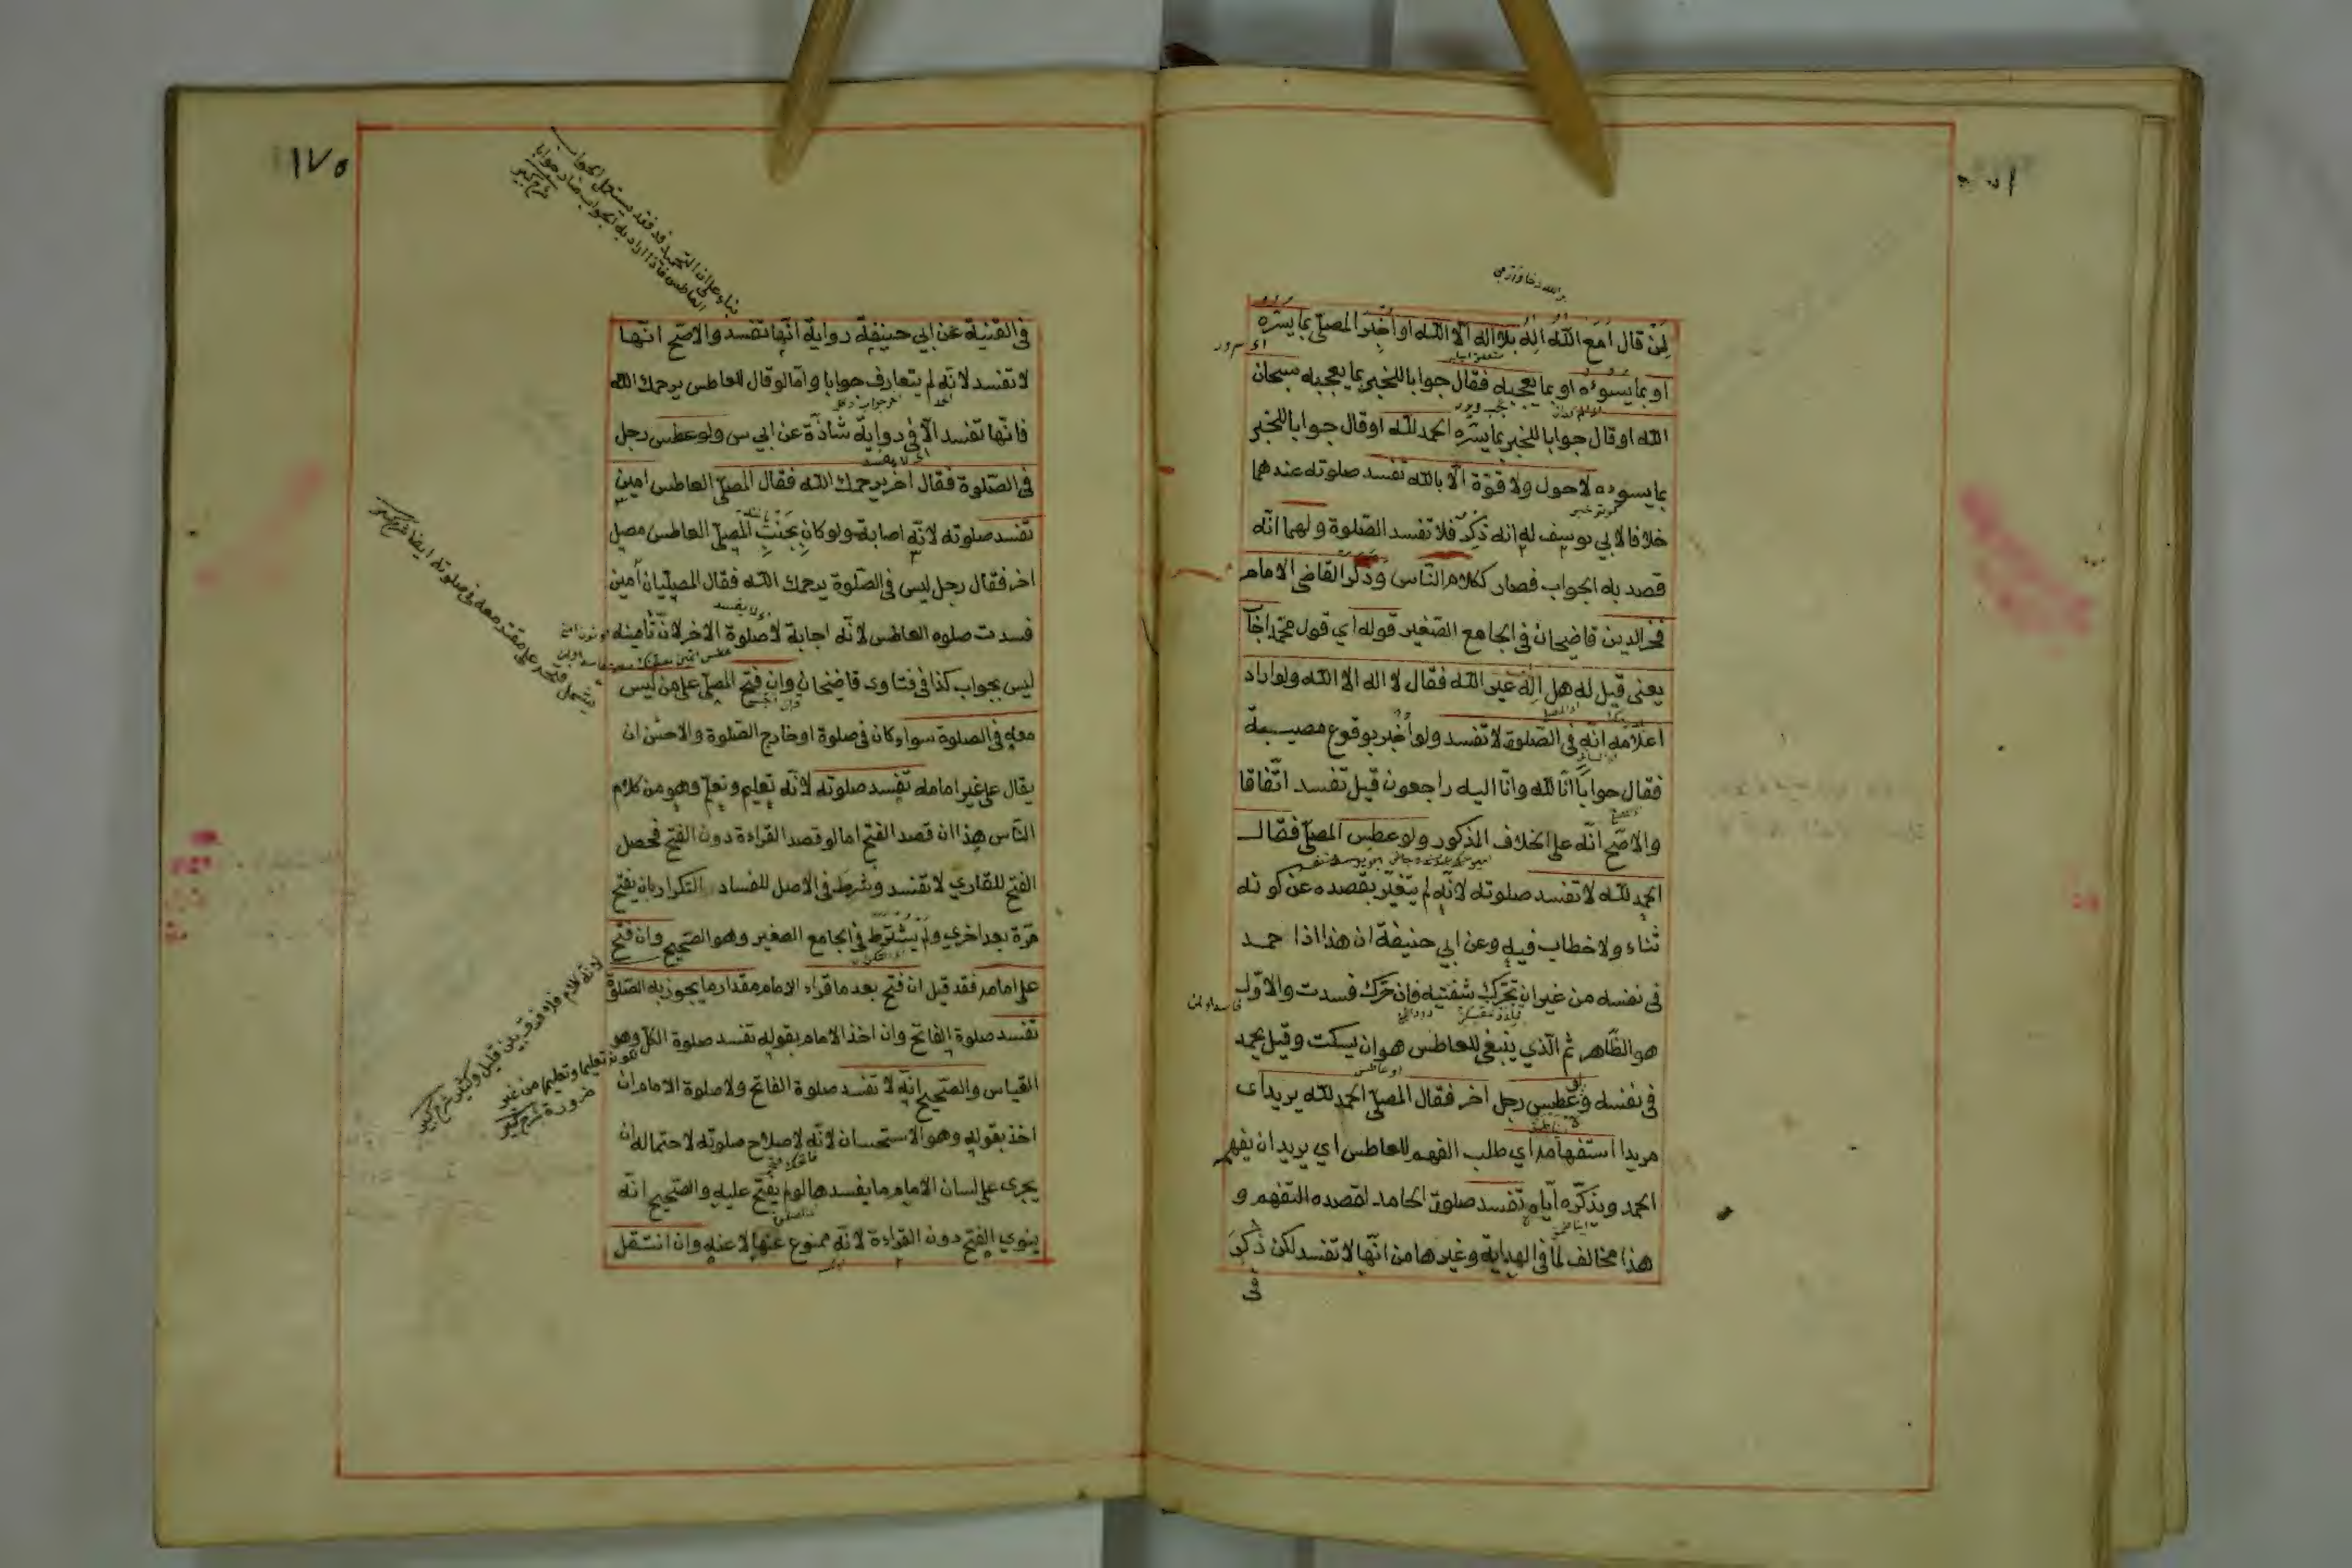 لمن قال أمع الله اله بلا اله الا الله او أخبر المصلي بما يسره
او بما يسوءه او بما يعجبه فقال جوابا للخبر بما يعجبه سبحان
الله او قال جوابا للخبر بما يسره الحمد لله او قال جوابا للخبر
بما يسوءه لاحول ولا قوة الا بالله تفسد صلوته عندهما
خلافا لابي يوسف له انه ذكر فلا تفسد الصلوة ولهما انه
قصد به الجواب فصار ككلام الناس وذكر القاضي الامام
فخر الدين قاضيخان في الجامع الصغير قوله اي قول محمد اجاب
يعني قيل له هل اله غير الله فقال لا اله الا الله ولو اراد
اعلامه انه في الصلوة لا تفسد ولو أخبر بوقوع مصيبة
فقال جوابا انا لله وانا اليه راجعون قيل تفسد اتفاقا
والاصح انه على الخلاف المذكور ولو عطس المصلي فقال
الحمد لله لا تفسد صلوته لانه لم يتغير بقصده عن كونه
ثناء ولا خطاب فيه وعن ابي حنيفة ان هذا اذا حمد
في نفسه من غير ان تحرك شفتيه فان حرك فسدت والاول
هو الظاهر ثم الذي ينبغي للعاطس هو ان يسكت وقيل يحمد
في نفسه و عطس رجل اخر فقال المصلي الحمد لله يريد اى
مريدا استفهامه اي طلب الفهم للعاطس اي يريد ان يفهم
الحمد ويذكره اياه تفسد صلوة الحامد لقصده التفهم و
هذا مخالف لما في الهداية وغيرها من انها لا تفسد لكن ذكر
في
١٧٥
في القنية عن ابي حنيفة رواية انها تفسد والاصح انها
لا تفسد لانه لم يتعارف جوابا واما لو قال للعاطس يرحمك الله
فانها تفسد الا في رواية شاذة عن ابي س ولو عطس رجل
في الصلوة فقال اخر يرحمك الله فقال المصلي العاطس امين
تفسد صلوته لانه اصابة ولو كان بجنب المصلي العاطس مصل
اخر فقال رجل ليس في الصلوة يرحمك الله فقال المصليان آمين
فسدت صلوه العاطس لانه اجابة لا صلوة الاخر لان تأمينه
ليس بجواب كذا في فتاوى قاضيخان وان فتح المصلي على من ليس
معه في الصلوة سواء كان في صلوة او خارج الصلوة والاحسن ان
يقال على غير امامه تفسد صلوته لانه تعليم وتعلم وهو من كلام
الناس هذا ان قصد الفتح اما لو قصد القراءة دون الفتح فحصل
الفتح للقاري لا تفسد وشرط في الاصل للفساد التكرار بان يفتح
مرة بعد اخري ولم يشترط في الجامع الصغير وهو الصحيح وان فتح
على امامه فقد قيل ان فتح بعد ما قراء الامام مقدار ما يجوز به الصلوة
تفسد صلوة الفاتح وان اخذ الامام بقوله تفسد صلوة الكل وهو
القياس والصحيح انه لا تفسد صلوة الفاتح ولا صلوة الامام ان
اخذ بقوله وهو الاستحسان لانه لاصلاح صلوته لاحتمال ان
يجرى على لسان الامام ما يفسدها لو لم يفتح عليه والصحيح انه
ينوي الفتح دون القراءة لانه ممنوع عنها لا عنه وان انتقل
لانه كلام فلا فرق بين قليل وكثير شرح كبير
تعليما وتعلما من غير
ضرورة شرح كبير